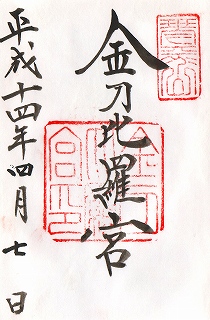 金刀比羅宮
平成十四年四月七日